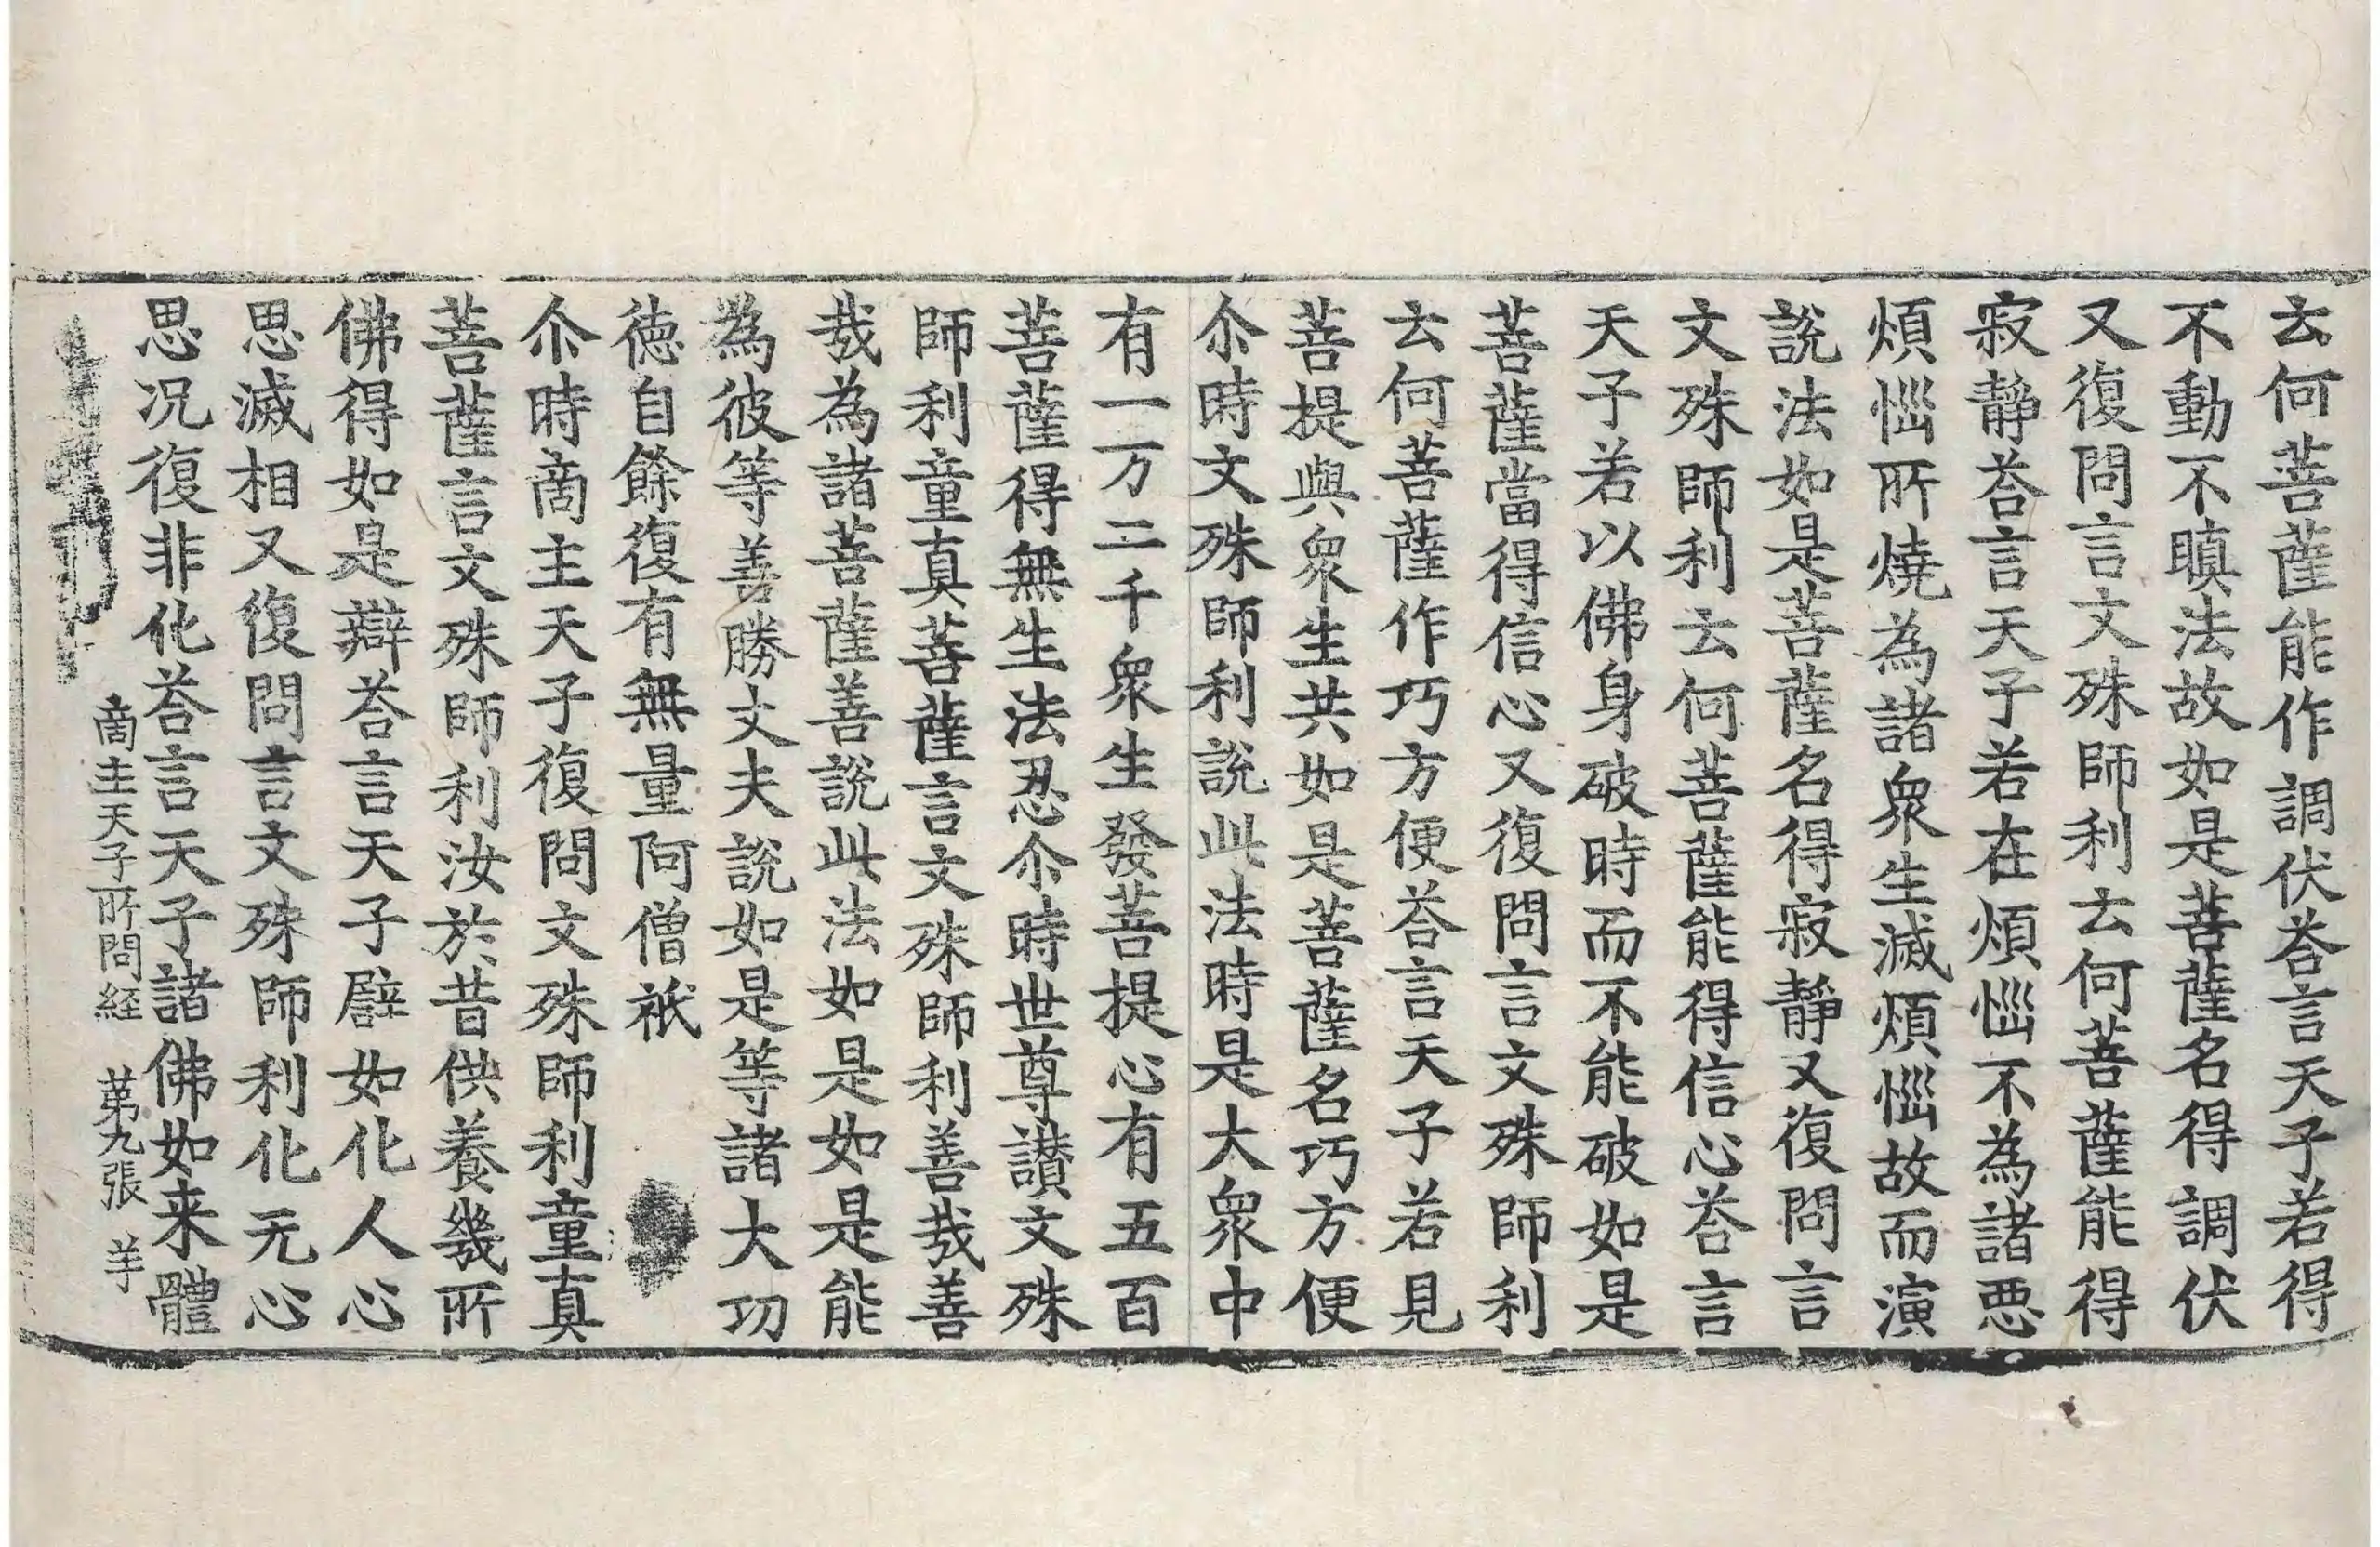 去何菩薩能作調伏荅言天子若得
不動不瞋法故如是菩薩名得調伏
又復問言文殊師利去何菩薩能得
寂静荅言天子若在煩惱不為諸惡
煩惱所燒為諸衆生滅煩惱故而演
說法如是菩薩名得寂静又復問言
文殊師利去何菩薩能得信心荅言
天子若以佛身破時而不能破如是
菩薩當得信心又復問言文殊師利
去何菩薩作巧方便荅言天子若見
菩提與衆生共如是菩薩名巧方便
尒時文殊師利說此法時是大衆中
有一万二千衆生發菩提心有五百
菩薩得無生法忍尒時世尊讃文殊
師利童真菩薩言文殊師利善哉善
哉為諸菩薩善說此法如是如是能
為彼等善勝丈夫說如是等諸大功
徳自餘復有無量阿僧祇
尒時啇主天子復問文殊師利童真
菩薩言文殊師利汝於昔供養幾所
佛得如是辯荅言天子譬如化人心
思滅相又復問言文殊師利化无心
思况復非化荅言天子諸佛如来體
啇主天子所問経 苐九張 羊